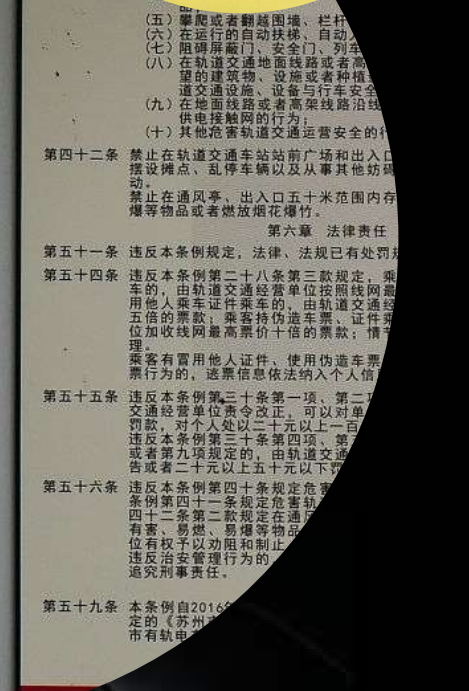 （五）攀爬或者翻越围墙、栏杆
（六）在运行的自动扶梯、自动
（七）阻碍屏蔽门、安全门、列车
（八）在轨道交通地面线路或者高
望的建筑物、设施或者种植
道交通设施、设备与行车安全
（九）在地面线路或者高架线路沿线
供电接触网的行为；
（十）其他危害轨道交通运营安全的行
第四十二条 禁止在轨道交通车站站前广场和出入口
摆设摊点、乱停车辆以及从事其他妨碍
动。
禁止在通风亭、出入口五十米范围内存
爆等物品或者燃放烟花爆竹。
第六章 法律责任
第五十一条 违反本条例规定，法律、法规已有处罚规
第五十四条 违反本条例第二十八条第三款规定，乘
车的，由轨道交通经营单位按照线网最
用他人乘车证件乘车的，由轨道交通经
五倍的票款；乘客持伪造车票、证件乘
位加收线网最高票价十倍的票款；情节
理。
乘客有冒用他人证件、使用伪造车票
票行为的，逃票信息依法纳入个人信
第五十五条 违反本条例第三十条第一项、第二项
交通经营单位责令改正，可以对单
罚款，对个人处以二十元以上一百
违反本条例第三十条第四项、第五
或者第九项规定的，由轨道交通
告或者二十元以上五十元以下罚
第五十六条 违反本条例第四十条规定危害
条例第四十一条规定危害轨
四十二条第二款规定在通风
有害、易燃、易爆等物品
位有权予以劝阻和制止
违反治安管理行为的
追究刑事责任。
第五十九条 本条例自2016年
定的《苏州市
市有轨电车